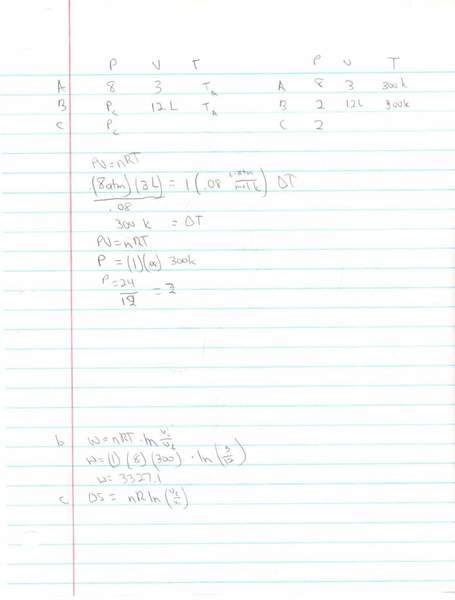 P V T
A 8 3 T_A
B P_C 12L T_A
C P_C
P V T
A 8 3 300k
B 2 12L 300k
C 2
PV=nRT
(8atm)(3L) = 1 (.08 L·atm/mol k) ΔT
.08
300 k = ΔT
PV=nRT
P = (1)(.08) 300k
P = 24/12 = 2
b W = nRT · ln
W = (1)(8)(300) · ln(3/12)
W = 3327.1
c ΔS = nR ln